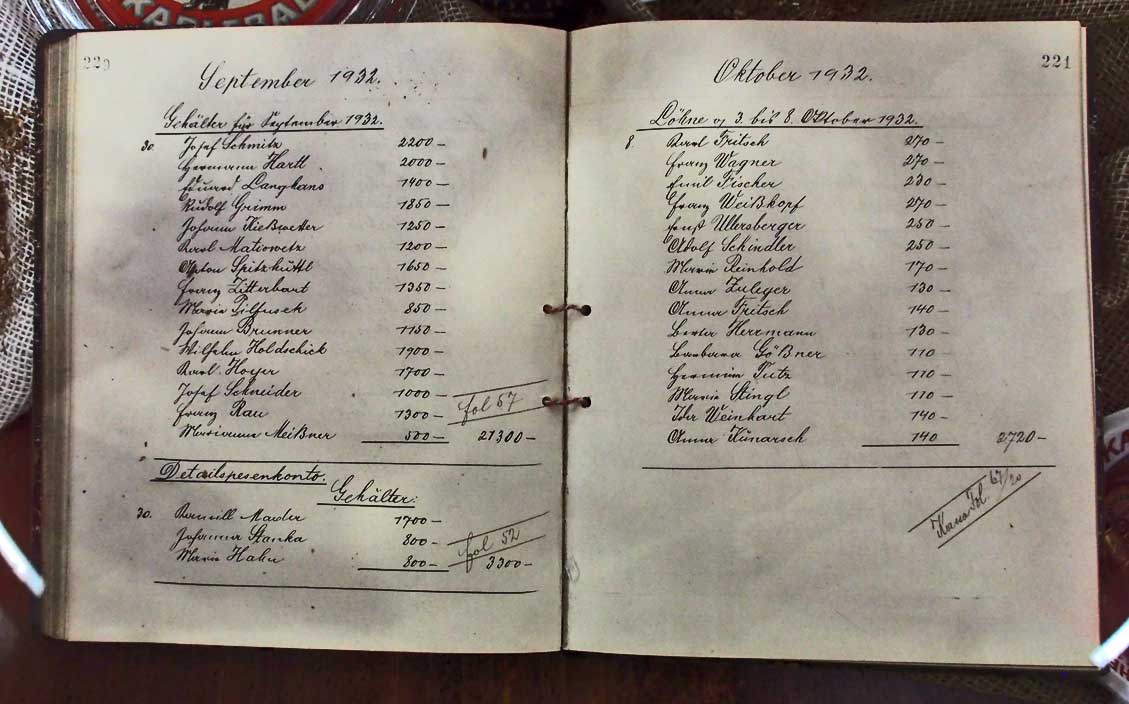 KARLSBAD
229
September 1932.
Gehälter für September 1932.
30. Josef Schmitz 2200 –
Hermann Hartl 2000 –
Eduard Langhans 1400 –
Rudolf Grimm 1850 –
Johann Kießwetter 1250 –
Karl Matiowetz 1200 –
Anton Spitzhüttl 1650 –
Franz Zitterbart 1350 –
Maria 850 –
Johann Brunner 1150 –
Wilhelm Holdschick 1900 –
Karl Hoyer 1700 –
Josef Schneider 1000 –
fol 57
Franz Rau 1300 –
Mariann Meißner 500 – 21300 –
Detailspesenkonto.
Gehälter:
30. Mader 1700 –
Johanna Stanka 800 –
fol 52
Maria Hahn 800 – 3300 –
221
Oktober 1932.
Löhne v. 3. bis 8. Oktober 1932.
8. Karl Fritsch 270 –
Franz Wagner 270 –
Emil Fischer 230 –
Franz Weißkopf 270 –
Ernst Ullersberger 250 –
Adolf Schindler 250 –
Maria Reinhold 170 –
Anna Zuleger 130 –
Anna Fritsch 140 –
Berta Herrmann 130 –
Barbara Gößner 110 –
Hermine Tutz 110 –
Maria Stingl 110 –
Ida Weinhart 140 –
Anna Kunarsch 140 2720 –
Fol. 67/20